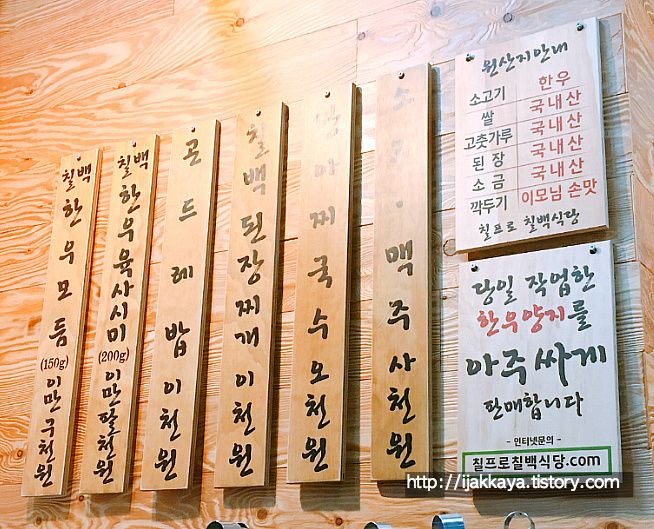 칠백 한우모듬 (150g) 이만구천원
칠백 한우육사시미 (200g) 이만팔천원
곤드레밥 이천원
칠백된장찌개 이천원
장아찌국수 오천원
소주·맥주 사천원
원산지안내
소고기 한우
쌀 국내산
고춧가루 국내산
된장 국내산
소금 국내산
깍두기 이모님 손맛
칠프로 칠백식당
당일 작업한
한우양지를
아주 싸게
판매합니다
- 인터넷문의 -
칠프로칠백식당.com
http://ijakkaya.tistory.com